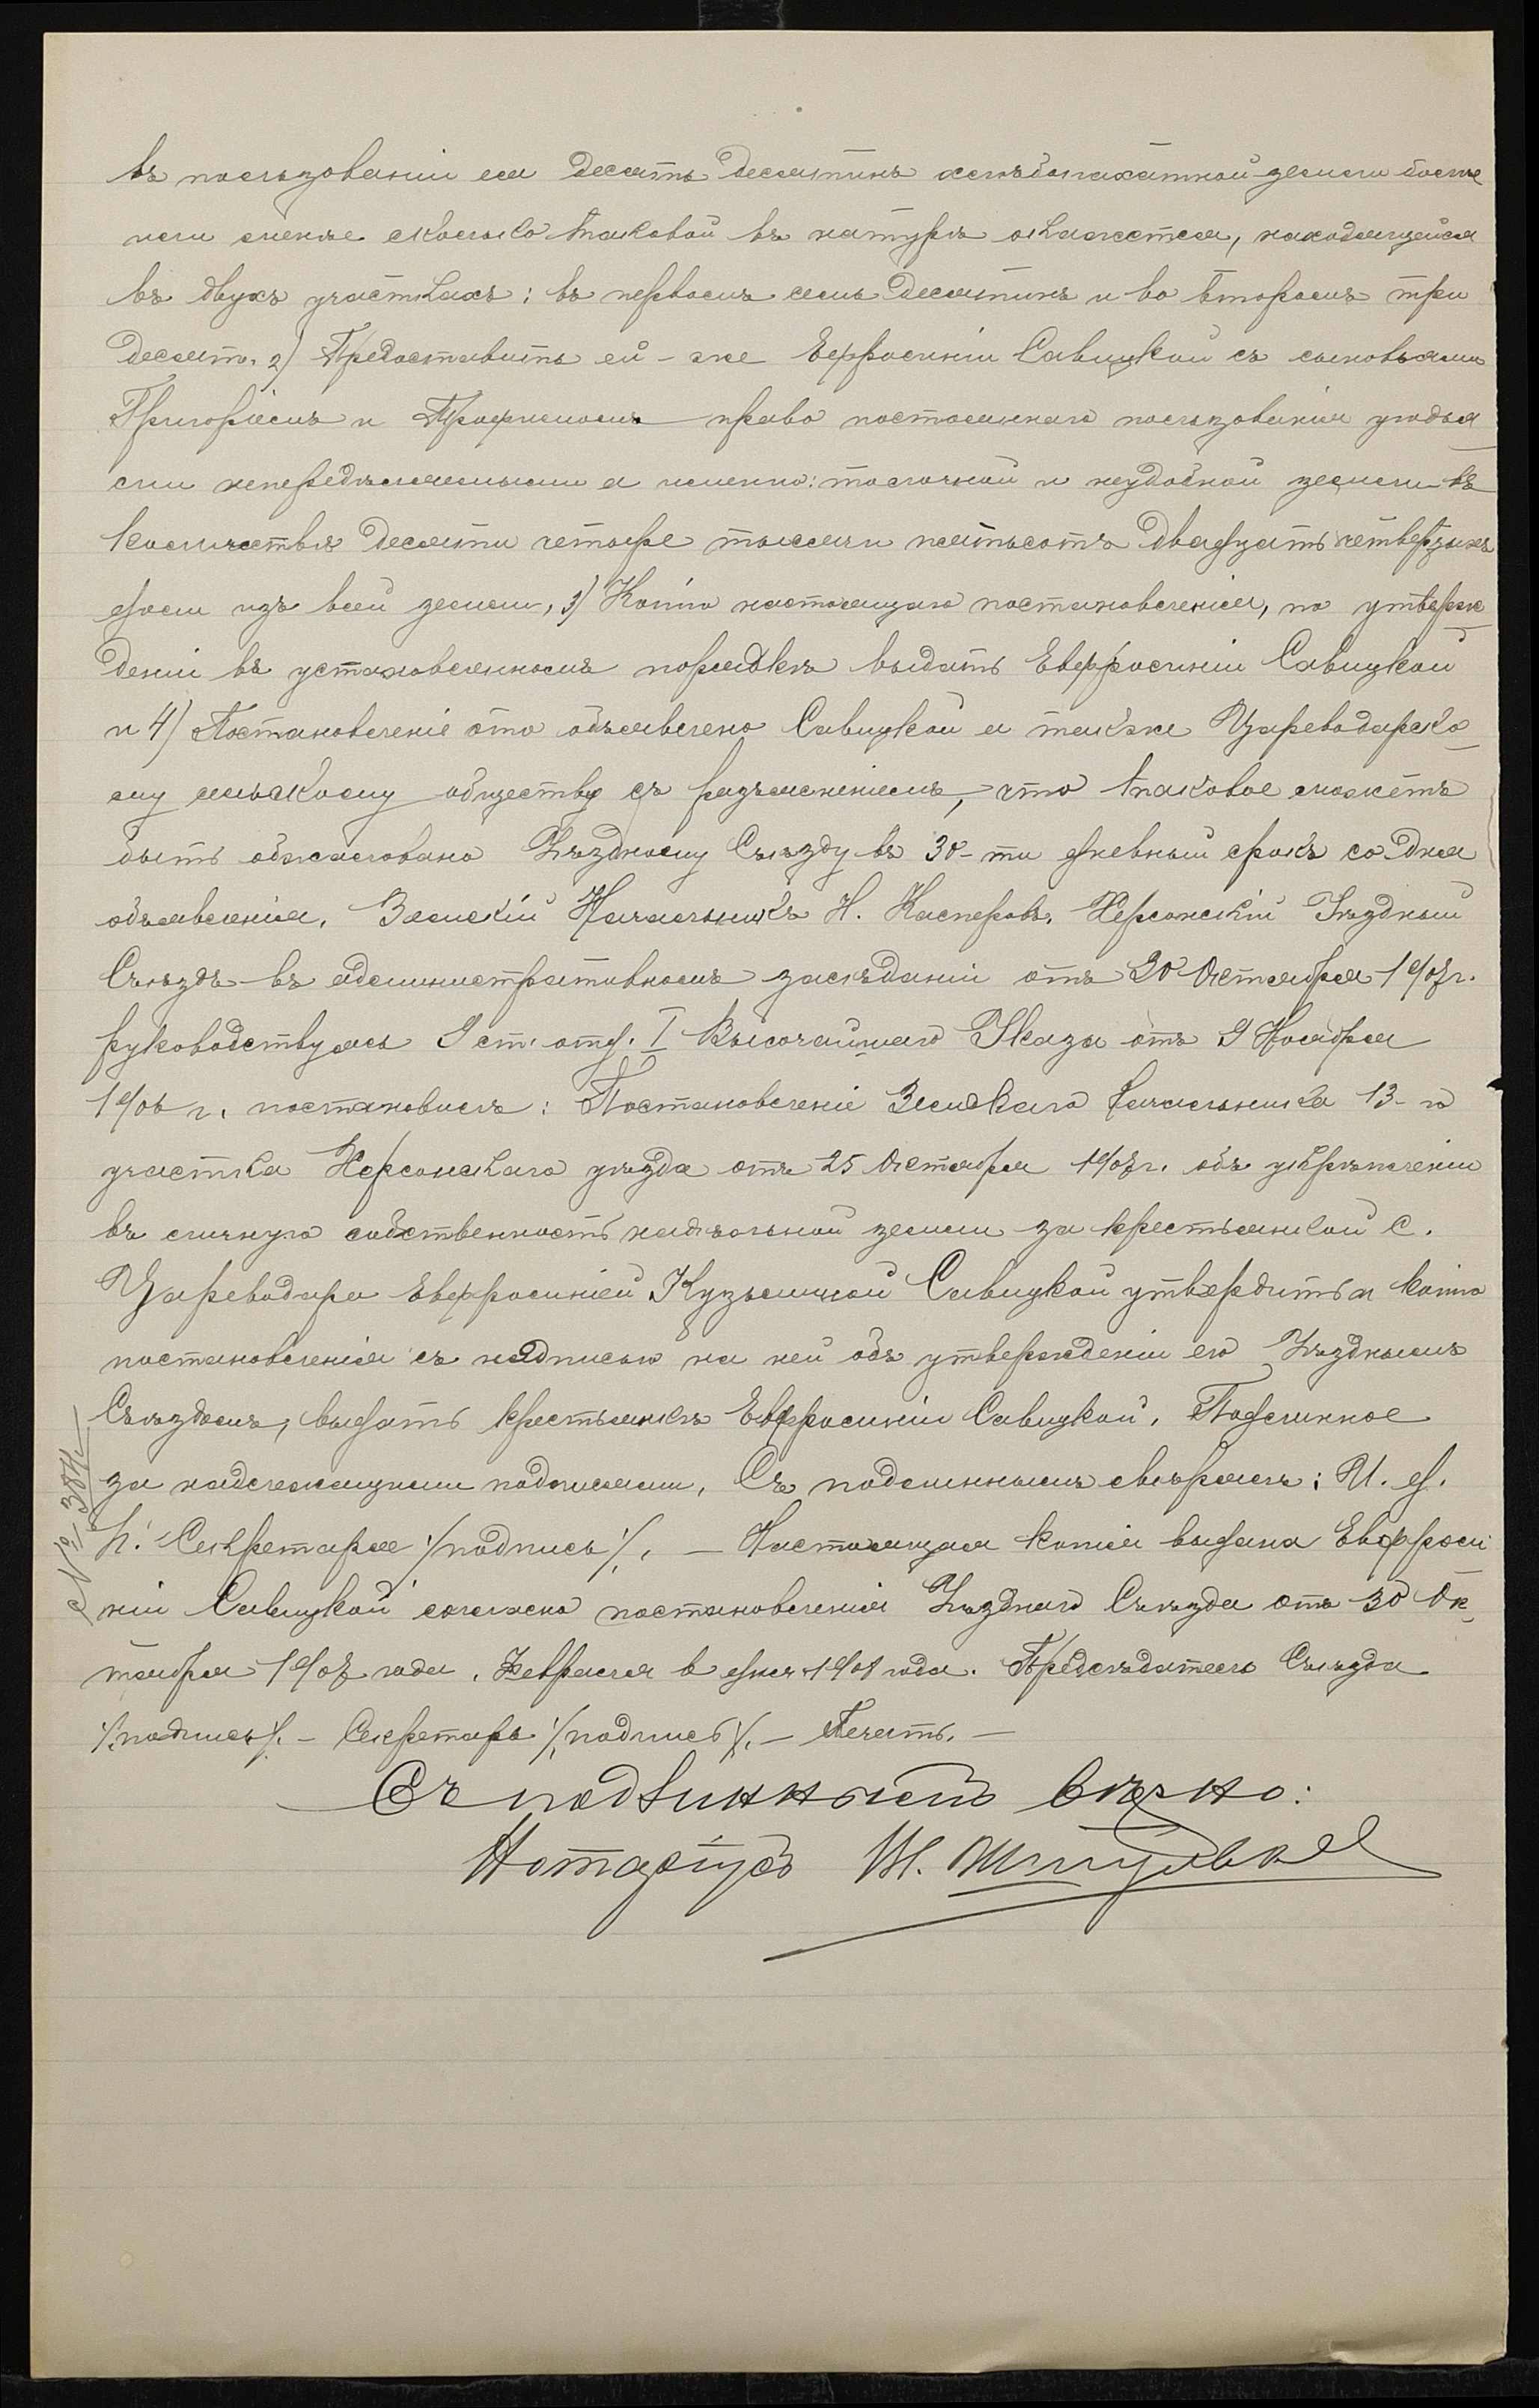 въ пользованіи ея десять десятинъ хлѣбопахатной земли болѣе
или менѣе сколько таковой въ натурѣ окажется, находящейся
въ двухъ участкахъ: въ первомъ семь десятинъ и во второмъ три
десят. 2) Предоставить ей-же Евфросиніи Савицкой съ сыновьями
Григоріемъ и Трофимомъ право постояннаго пользованія угодья
ми непередѣляемыми а именно: толочной и неудобной земли въ
количествѣ десяти четыре тысячи пятьсотъ двадцать четвертыхъ
доли изъ всей земли, 3) Копію настоящаго постановленія, по утверж
деніи въ установленномъ порядкѣ выдать Евфросиніи Савицкой
и 4) Постановленіе это объявлено Савицкой а также Цареводарско
му сельскому обществу съ разъясненіемъ, что таковое можетъ
быть обжаловано Уѣздному Съѣзду въ 30-ти дневный срокъ со дня
объявленія. Земскій Начальникъ Н. Касперовъ. Херсонскій Уѣздный
Съѣздъ въ административномъ засѣданіи отъ 30 Октября 1907 г.
руководствуясь 9 ст. отд. I Высочайшаго Указа отъ 9 Ноября
1906 г. постановилъ: Постановленіе Земскаго Начальника 13-го
участка Херсонскаго уѣзда отъ 25 Октября 1907 г. объ укрѣпленіи
въ личную собственность надѣльной земли за крестьянкой с.
Цареводара Евфросиніей Кузьминой Савицкой утвердить и копію
постановленія съ надписью на ней объ утвержденіи его Уѣзднымъ
Съѣздомъ, выдать крестьянкѣ Евфросиніи Савицкой. Подлинное
за надлежащими подписями. Съ подлиннымъ свѣрялъ: И. д.
п. Секретаря /подпись/. — Настоящая копія выдана Евфроси
ніи Савицкой согласно постановленія Уѣзднаго Съѣзда отъ 30 Ок
тября 1907 года. Февраля 6 дня 1908 года. Предсѣдатель Съѣзда
/подпись/. — Секретарь /подпись/. — Печать. —
Съ подлиннымъ вѣрно:
Нотаріусъ